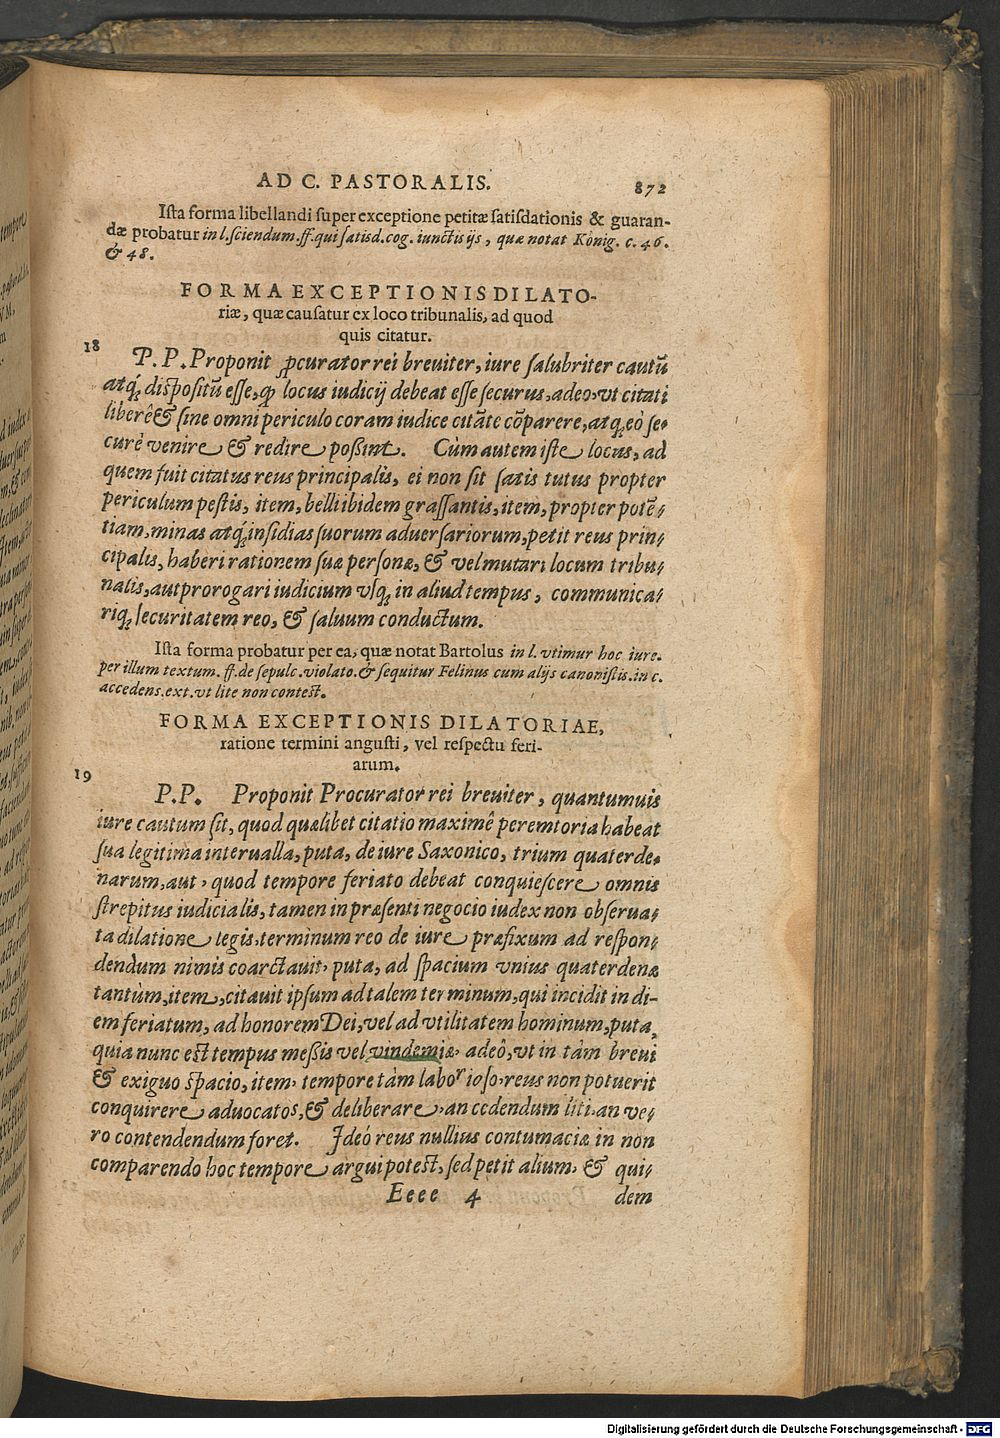 AD C. PASTORALIS. 872
Iſta forma libellandi ſuper exceptione petitæ ſatiſdationis & guaran-
dæ probatur in l. ſciendum. ff. qui ſatisd. cog. iunctis ijs, quæ notat König. c. 46.
& 48.
FORMA EXCEPTIONIS DILATO-
riæ, quæ cauſatur ex loco tribunalis, ad quod
quis citatur.
18 P. P. Proponit ꝓcurator rei breuiter, iure ſalubriter cautũ
atq́; diſpoſitũ eſſe, ꝙ locus iudicij debeat eſſe ſecurus, adeo, vt citati
liberè & ſine omni periculo coram iudice citãte cõparere, atq; eò ſe-
curè venire & redire poßint. Cùm autem iſte locus, ad
quem fuit citatus reus principalis, ei non ſit ſatis tutus propter
periculum peſtis, item, belli ibidem graſſantis, item, propter potẽ-
tiam, minas atq́; inſidias ſuorum aduerſariorum, petit reus prin-
cipalis, haberi rationem ſuæ perſonæ, & vel mutari locum tribu-
nalis, aut prorogari iudicium vſq; in aliud tempus, communica-
riq; ſecuritatem reo, & ſaluum conductum.
Iſta forma probatur per ea, quæ notat Bartolus in l. vtimur hoc iure.
per illum textum. ff. de ſepulc. violato. & ſequitur Felinus cum alijs canoniſtis. in c.
accedens. ext. vt lite non conteſt.
FORMA EXCEPTIONIS DILATORIAE,
ratione termini anguſti, vel reſpectu feri-
arum.
19 P. P. Proponit Procurator rei breuiter, quantumuis
iure cautum ſit, quod quælibet citatio maximê peremtoria habeat
ſua legitima interualla, puta, de iure Saxonico, trium quaterde-
narum, aut, quod tempore feriato debeat conquieſcere omnis
ſtrepitus iudicialis, tamen in præſenti negocio iudex non obſerua-
ta dilatione legis, terminum reo de iure præfixum ad reſpon-
dendum nimis coarctauit, puta, ad ſpacium vnius quaterdenæ
tantùm, item, citauit ipſum ad talem terminum, qui incidit in di-
em feriatum, ad honorem Dei, vel ad vtilitatem hominum, puta,
quia nunc eſt tempus meßis vel vindemiæ, adeô, vt in tàm breui
& exiguo ſpacio, item, tempore tàm labor ioſo, reus non potuerit
conquirere aduocatos, & deliberare, an cedendum liti, an ve-
ro contendendum foret. Ideó reus nullius contumaciæ in non
comparendo hoc tempore argui poteſt, ſed petit alium, & qui-
Eeee 4 dem
Digitalisierung gefördert durch die Deutsche Forschungsgemeinschaft - DFG